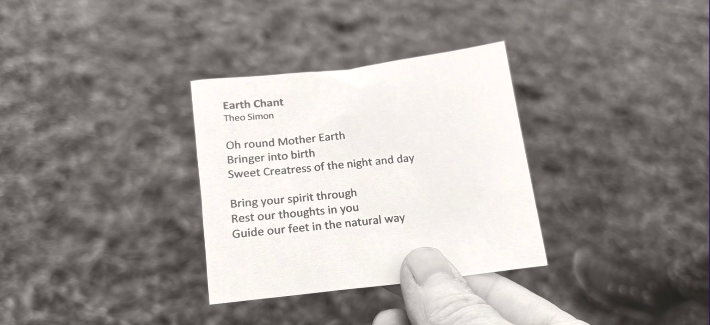 Earth Chant
Theo Simon
Oh round Mother Earth
Bringer into birth
Sweet Creatress of the night and day
Bring your spirit through
Rest our thoughts in you
Guide our feet in the natural way